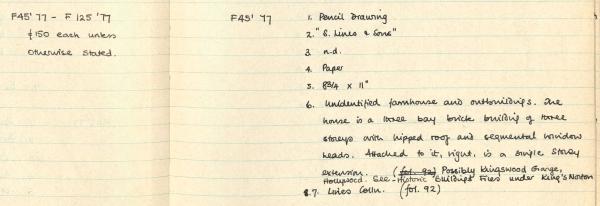 F45' 77 - F 125 '77
£150 each unless
otherwise stated.
F45' 77
1. Pencil drawing
2. "S. Lines & Sons"
3. n.d.
4. Paper
5. 8¾ x 11"
6. Unidentified farmhouse and outbuildings. The
house is a three bay brick building of three
storeys with hipped roof and segmental window
heads. Attached to it, right, is a single storey
extension. (fol. 92) Possibly Kingswood Grange,
Hollywood. See Historic Buildings Files under King's Norton
7. Lines Colln. (fol. 92)